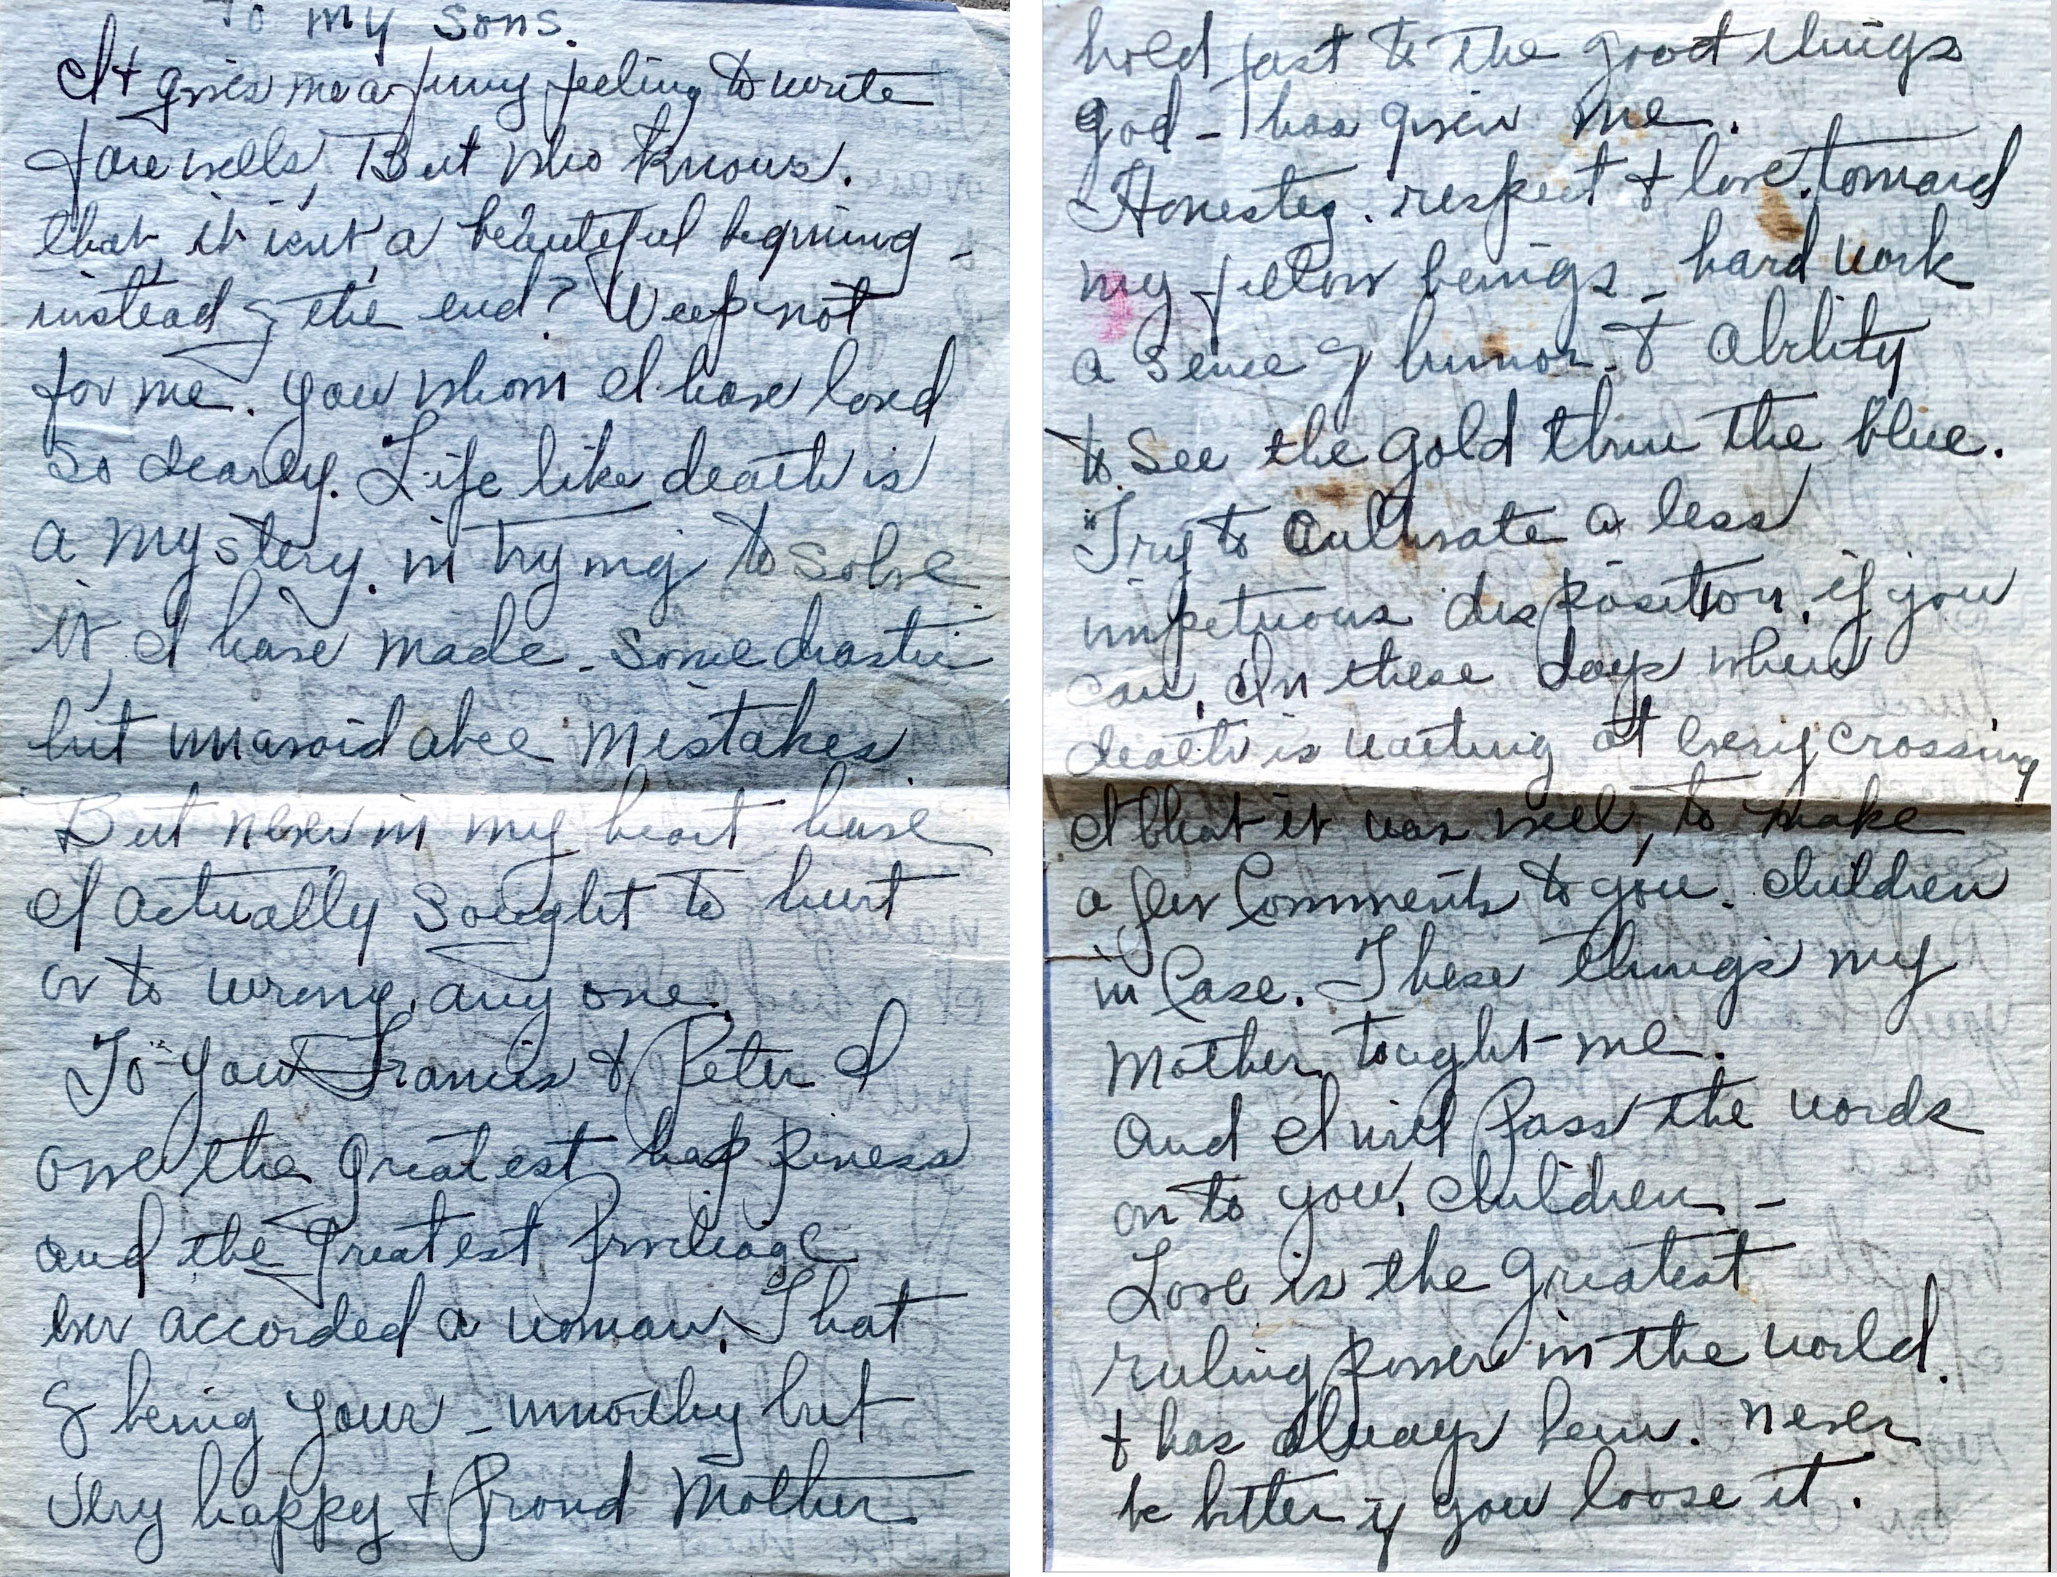 To my sons.
It gives me a funny feeling to write
farewells, But who knows.
that, it isn't, a beautiful begining -
instead of the end? Weep not
for me. you whom I have loved
so dearly. Life like death is
a mystery. in trying to solve
it, I have made - some drastic
but unavoidable mistakes.
But never in my heart have
I actually sought to hurt
or to wrong, any one.
To "you Francis & Peter I
owe the greatest happiness
and the greatest
ever accorded a woman. That
of being your - unworthy but
very happy & proud Mother.
hold fast to the good things
god - has given me.
Honesty. respect & love. toward
my fellow beings - hard work
a sence of humor. & ability
to see the gold thru the blue.
"Try to cultivate a less
impetuous disposition, if you
can, In these days when
death is waiting at every crossing
I that it was well, to make
a few Comments to you. children
in Case. These things my
Mother tought me.
And I will pass the words
on to you, children. -
Love is the greatest
ruling power in the world.
& has always been. never
be bitter if you loose it.